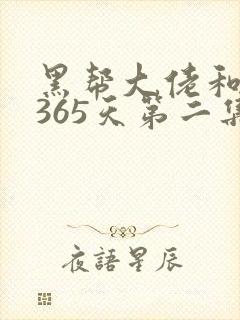 黑帮大佬和
365天第二集
夜語星辰